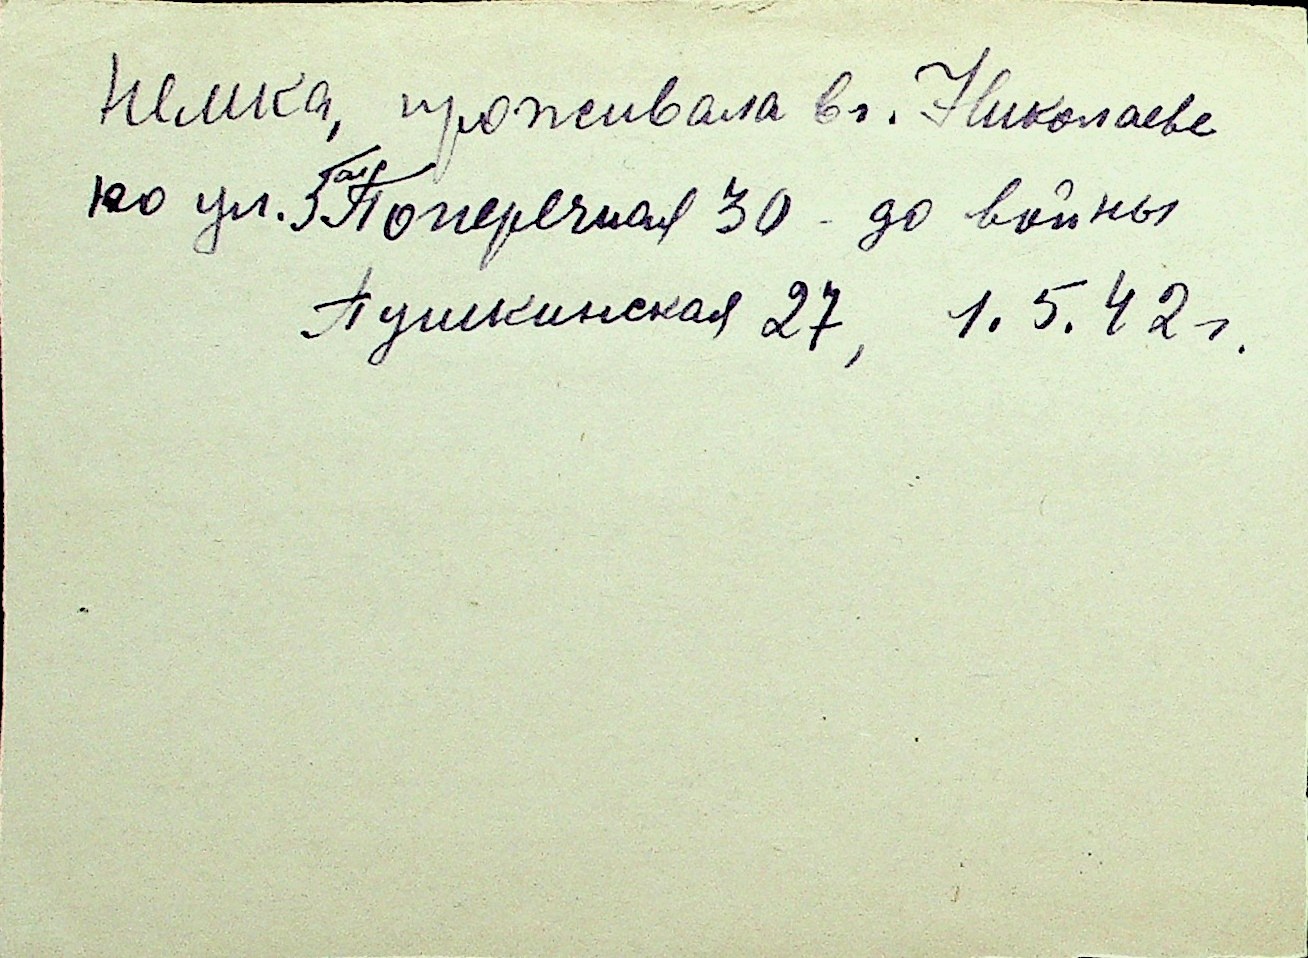 Немка, проживала в г. Николаеве
по ул. 5ая Поперечная 30 - до войны
Пушкинская 27, 1.5.42 г.